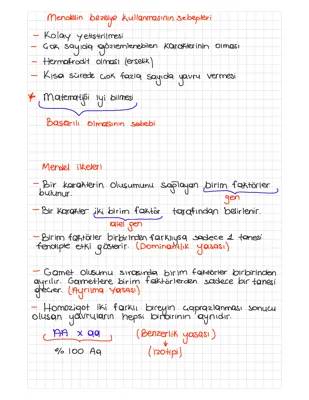 Mendelin bezelye kullanmasının sebepleri
- Kolay yetiştirilmesi
- Çok sayıda gözlemlenebilen karakterinin olması
- Hermafrodit olması (erselik)
- Kısa sürede çok fazla sayıda yavru vermesi
* Matematiği iyi bilmesi
Başarılı olmasının sebebi
Mendel ilkeleri
- Bir karakterin oluşumunu sağlayan birim faktörler
bulunur.
gen
- Bir karakter iki birim faktör tarafından belirlenir.
alel gen
- Birim faktörler birbirinden farklıysa sadece 1 tanesi
fenotipte etki gösterir. (Dominantlık yasası)
- Gamet oluşumu sırasında birim faktörler birbirinden
ayrılır. Gametlere birim faktörlerden sadece bir tanesi
geçer. (Ayrılma Yasası)
- Homozigot iki farklı bireyin çaprazlanması sonucu
oluşan yavruların hepsi birbirinin aynıdır.
AA x aa (Benzerlik yasası)
% 100 Aa (izotipi)